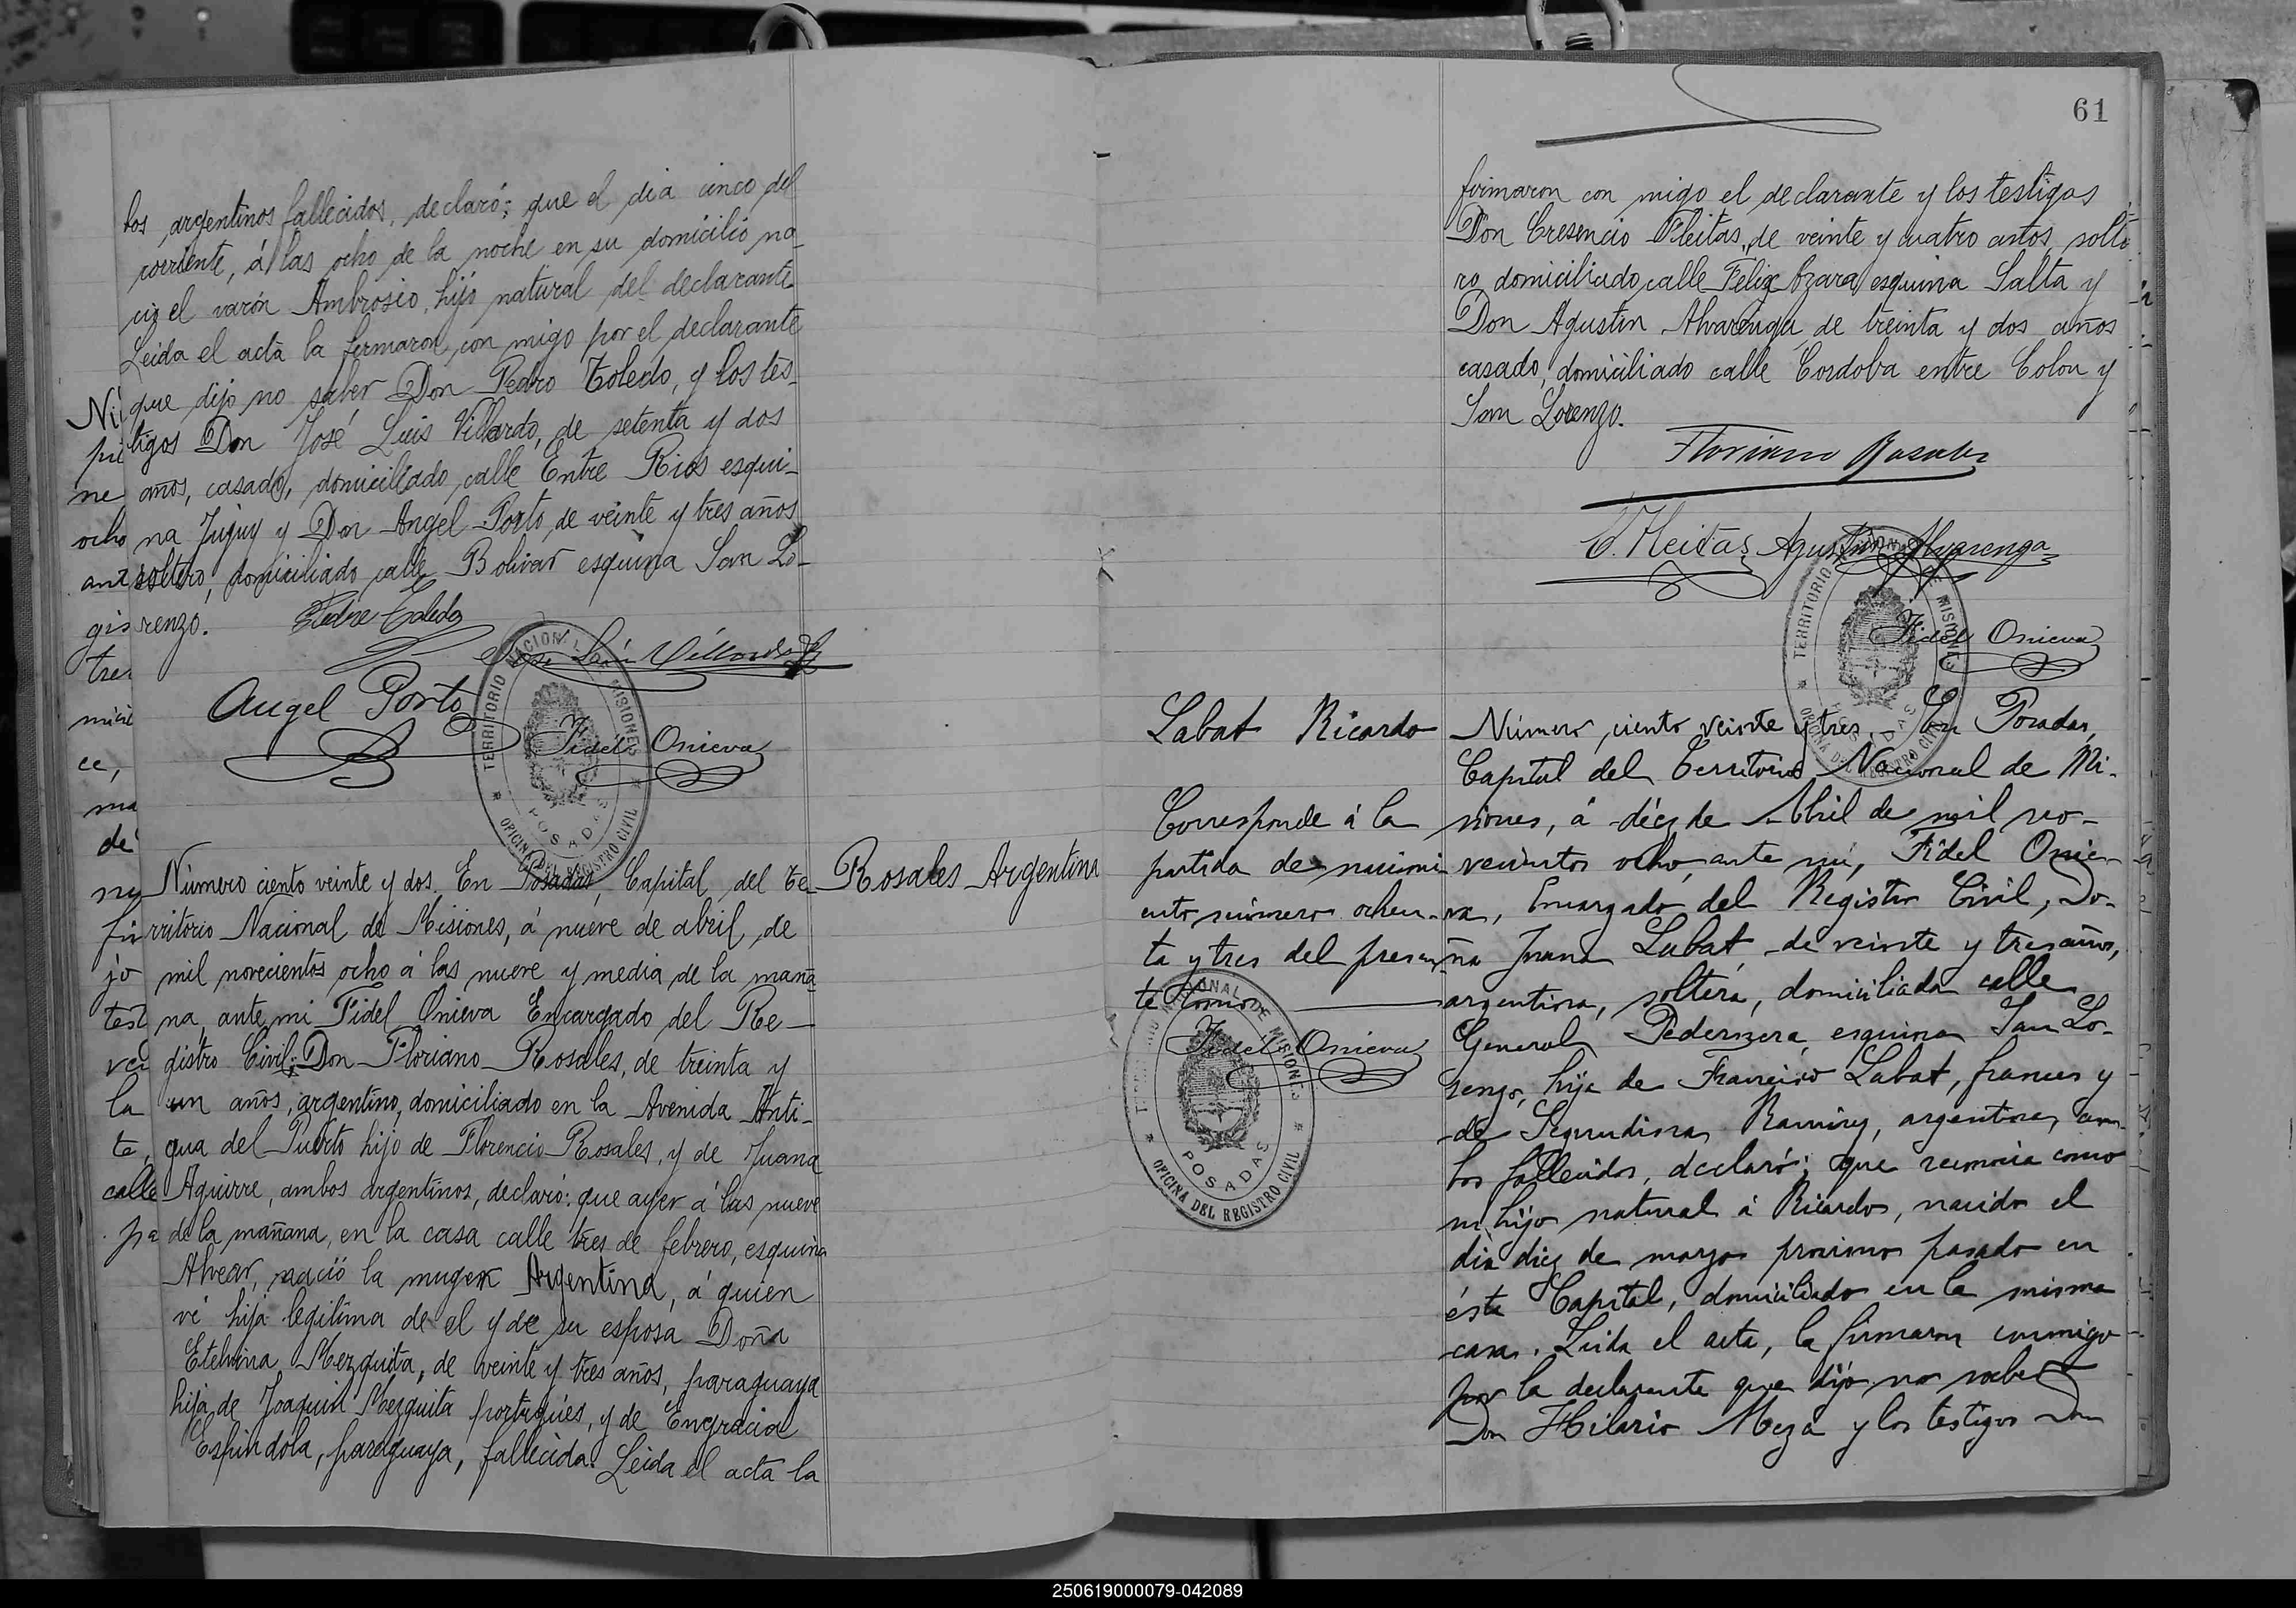 bos argentinos fallecidos, declaró; que el dia cinco del
corriente, á las ocho de la noche en su domicilio na
ció el varón Ambrosio, hijo natural del declarante
Leida el acta la firmaron con migo por el declarante
que dijo no saber Don Pedro Toledo, y los tes-
tigos Don José Luis Villordo, de setenta y dos
años, casado, domiciliado calle Entre Rios esqui-
na Jujuy y Don Angel Porto, de veinte y tres años
soltero, domiciliado calle Bolivar esquina San Lo-
renzo.
Pedro Toledo
José Luis Villordo
Angel Porto
Fidel Onieva
TERRITORIO NACIONAL DE MISIONES
POSADAS
OFICINA DEL REGISTRO CIVIL
Rosales Argentina
Número ciento veinte y dos. En Posadas, Capital del Te-
rritorio Nacional de Misiones, á nueve de abril de
mil novecientos ocho á las nueve y media de la maña
na, ante mi Fidel Onieva Encargado del Re-
gistro Civil; Don Floriano Rosales, de treinta y
un años, argentino, domiciliado en la Avenida Anti-
gua del Puerto hijo de Florencio Rosales, y de Juana
Aguirre, ambos argentinos, declaró: que ayer á las nueve
de la mañana, en la casa calle tres de febrero, esquina
Alvear, nació la muger Argentina, á quien
vé hija legitima de el y de su esposa Doña
Etelvina Mezquita, de veinte y tres años, paraguaya
hija de Joaquin Mezquita portugués, y de Engracia
Espindola, paraguaya, fallecida. Leida el acta la
61
firmaron con migo el declarante y los testigos
Don Cresencio Fleitas, de veinte y cuatro años, solte
ro, domiciliado calle Felix Azara esquina Salta y
Don Agustin Alvarenga de treinta y dos años
casado, domiciliado calle Cordoba entre Colon y
San Lorenzo.
Floriano Rosales
C. Fleitas Agustin Alvarenga
Fidel Onieva
TERRITORIO NACIONAL DE MISIONES
POSADAS
OFICINA DEL REGISTRO CIVIL
Labat Ricardo
Corresponde á la
partida de nacimi-
ento número ochen-
ta y tres del presen-
te tomo
Fidel Onieva
TERRITORIO NACIONAL DE MISIONES
POSADAS
OFICINA DEL REGISTRO CIVIL
Número ciento veinte y tres. En Posadas,
Capital del Territorio Nacional de Mi-
siones, á diéz de Abril de mil no-
vecientos ocho, ante mi, Fidel Onie-
va, Encargado del Registro Civil, Do-
ña Juana Labat, de veinte y tres años,
argentina, soltera, domiciliada calle
General Pedernera esquina San Lo-
renzo, hija de Francisco Labat, frances y
de Segundina Ramirez, argentina, am-
bos fallecidos, declaró; que reconocia como
su hijo natural á Ricardo, nacido el
dia diez de marzo proximo pasado en
ésta Capital, domiciliado en la misma
casa. Leida el acta, la firmaron conmigo
por la declarante que dijo no saber
Don Hilario Meza y los testigos Don
250619000079-042089